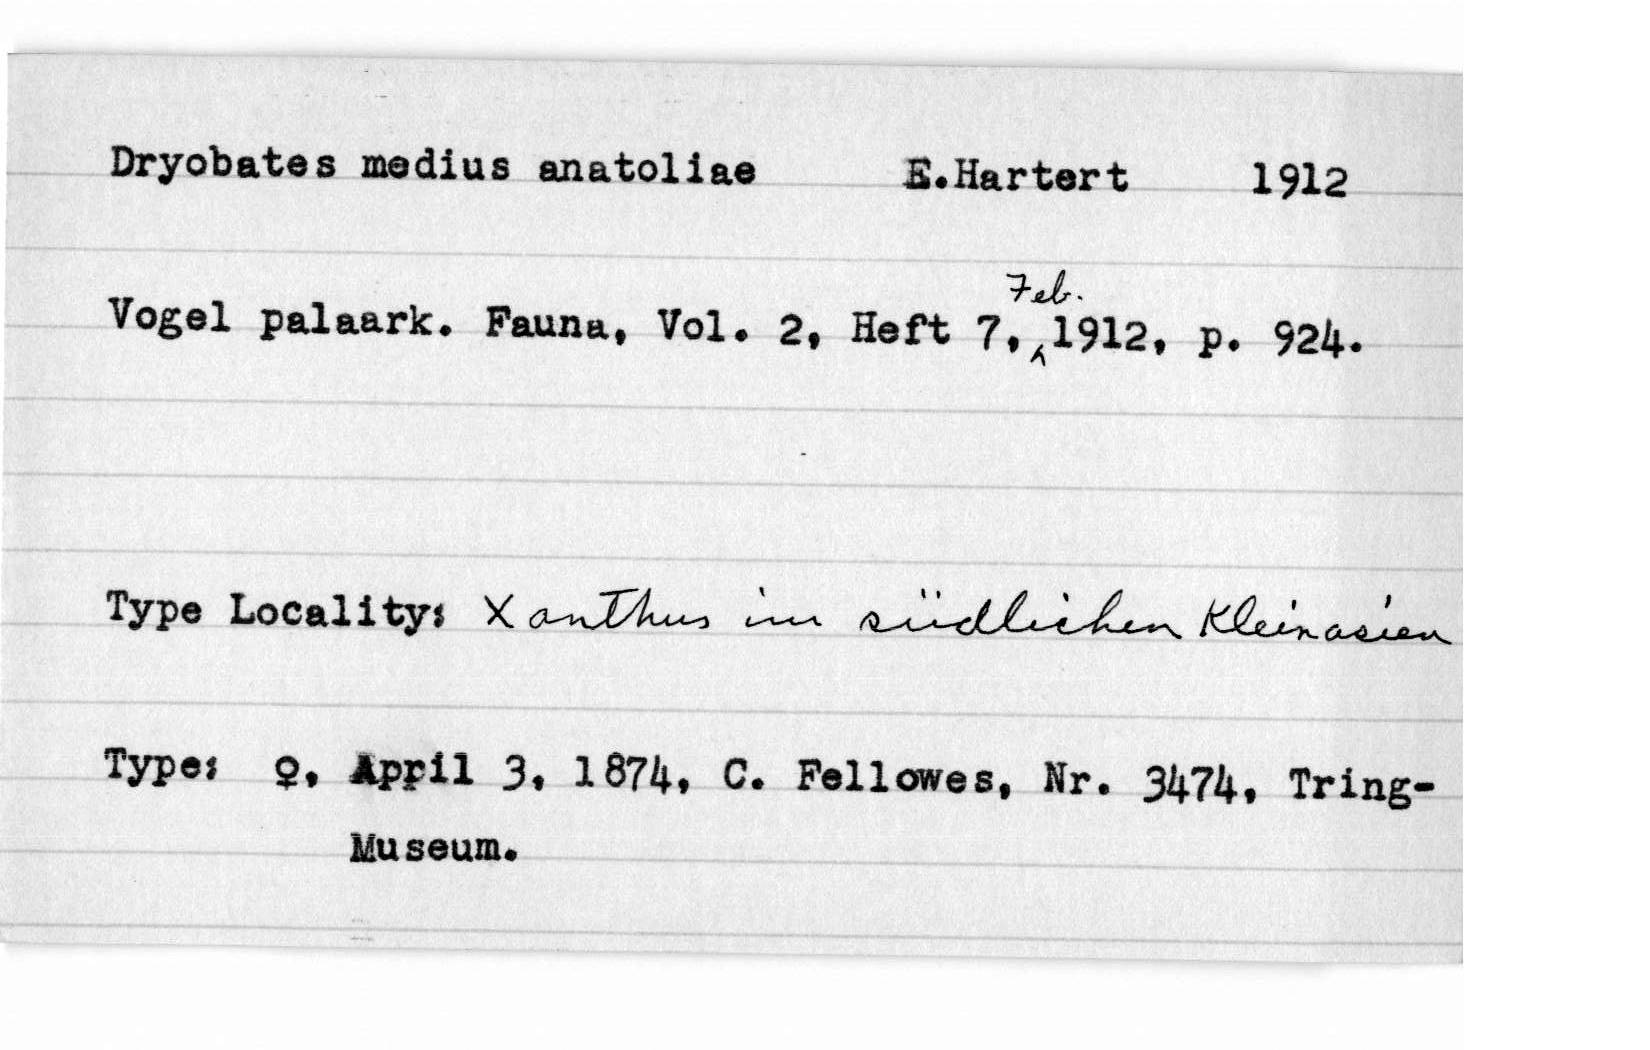 Dryobates medius anatoliae E.Hartert 1912
Vogel palaark. Fauna, Vol. 2, Heft 7, Feb. 1912, p. 924.
Type Locality: Xanthus im südlichen Kleinasien
Type: ♀, April 3, 1874, C. Fellowes, Nr. 3474, Tring-
Museum.